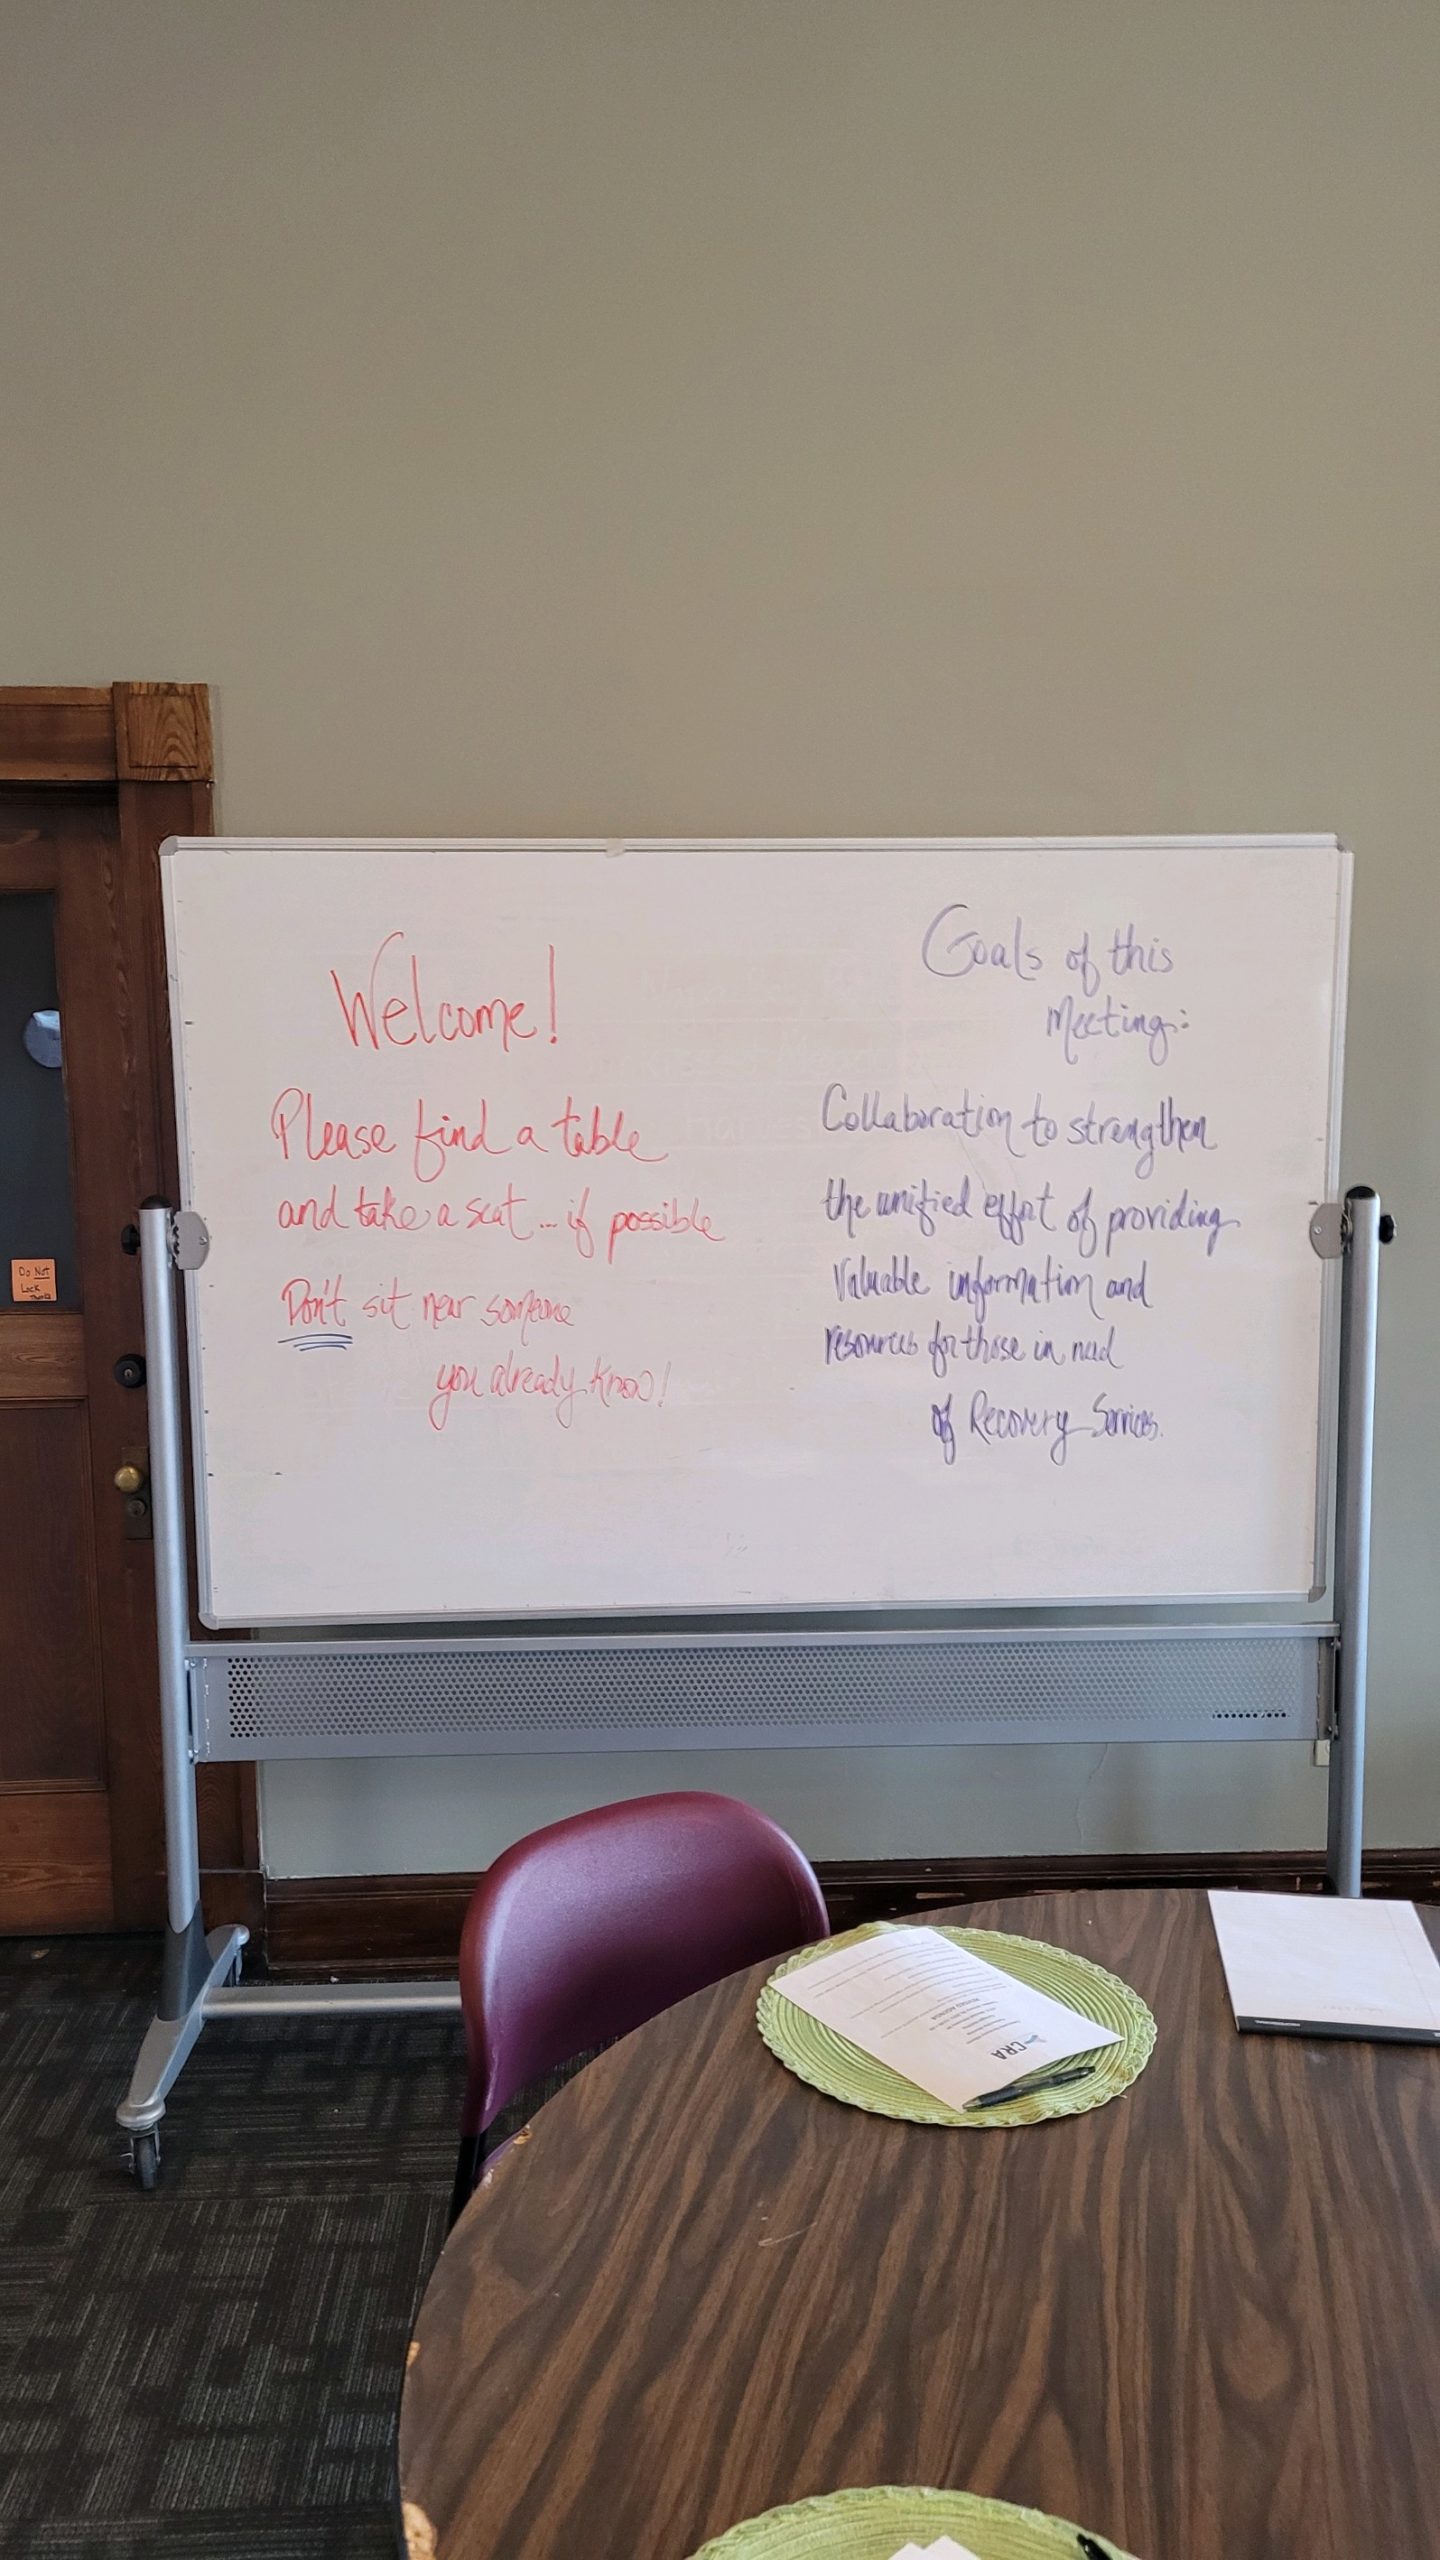 Welcome!
Please find a table
and take a seat... if possible
Don't sit near someone
you already know!
Goals of this
Meeting:
Collaboration to strengthen
the unified effort of providing
Valuable information and
resources for those in need
of Recovery Services.
Do Not
Lock
Thanks
CRA
REVISED AGENDA